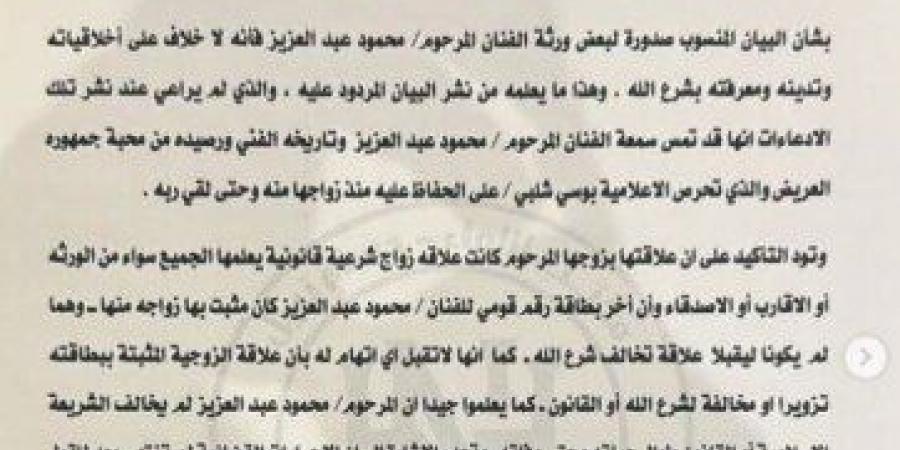 بشأن البيان المنسوب صدورة لبعض ورثة الفنان المرحوم/ محمود عبد العزيز فأنه لا خلاف على أخلاقياته
وتدينه ومعرفته بشرع الله . وهذا ما يعلمه من نشر البيان المردود عليه ، والذي لم يراعي عند نشر تلك
الادعاءات انها قد تمس سمعة الفنان المرحوم / محمود عبد العزيز وتاريخه الفني ورصيده من محبة جمهوره
العريض والذي تحرص الاعلامية بوسي شلبي / على الحفاظ عليه منذ زواجها منه وحتى لقي ربه .
وتود التأكيد على ان علاقتها بزوجها المرحوم كانت علاقه زواج شرعية قانونية يعلمها الجميع سواء من الورثه
أو الاقارب أو الاصدقاء وأن أخر بطاقة رقم قومي للفنان / محمود عبد العزيز كان مثبت بها زواجه منها ـ وهما
لم يكونا ليقبلا علاقة تخالف شرع الله . كما انها لاتقبل اي اتهام له بأن علاقة الزوجية المثبتة ببطاقته
تزويرا او مخالفة لشرع الله أو القانون . كما يعلموا جيدا ان المرحوم/ محمود عبد العزيز لم يخالف الشريعة